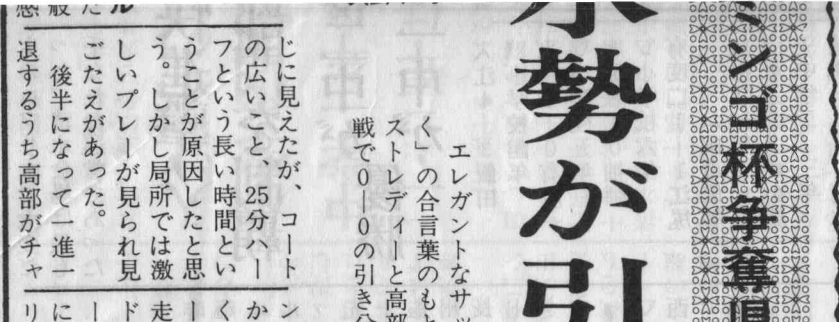 ンゴ杯争奪県
勢が引
エレガントなサッ
く」の合言葉のもと
ストレディーと高部
戦で0―0の引き分
じに見えたが、コート
の広いこと、25分ハー
フという長い時間とい
うことが原因したと思
う。しかし局所では激
しいプレーが見られ見
ごたえがあった。
後半になって一進一
退するうち高部がチャ
ル
た
般
感
ン
か
く
ー
走
ド
ー
に
リ